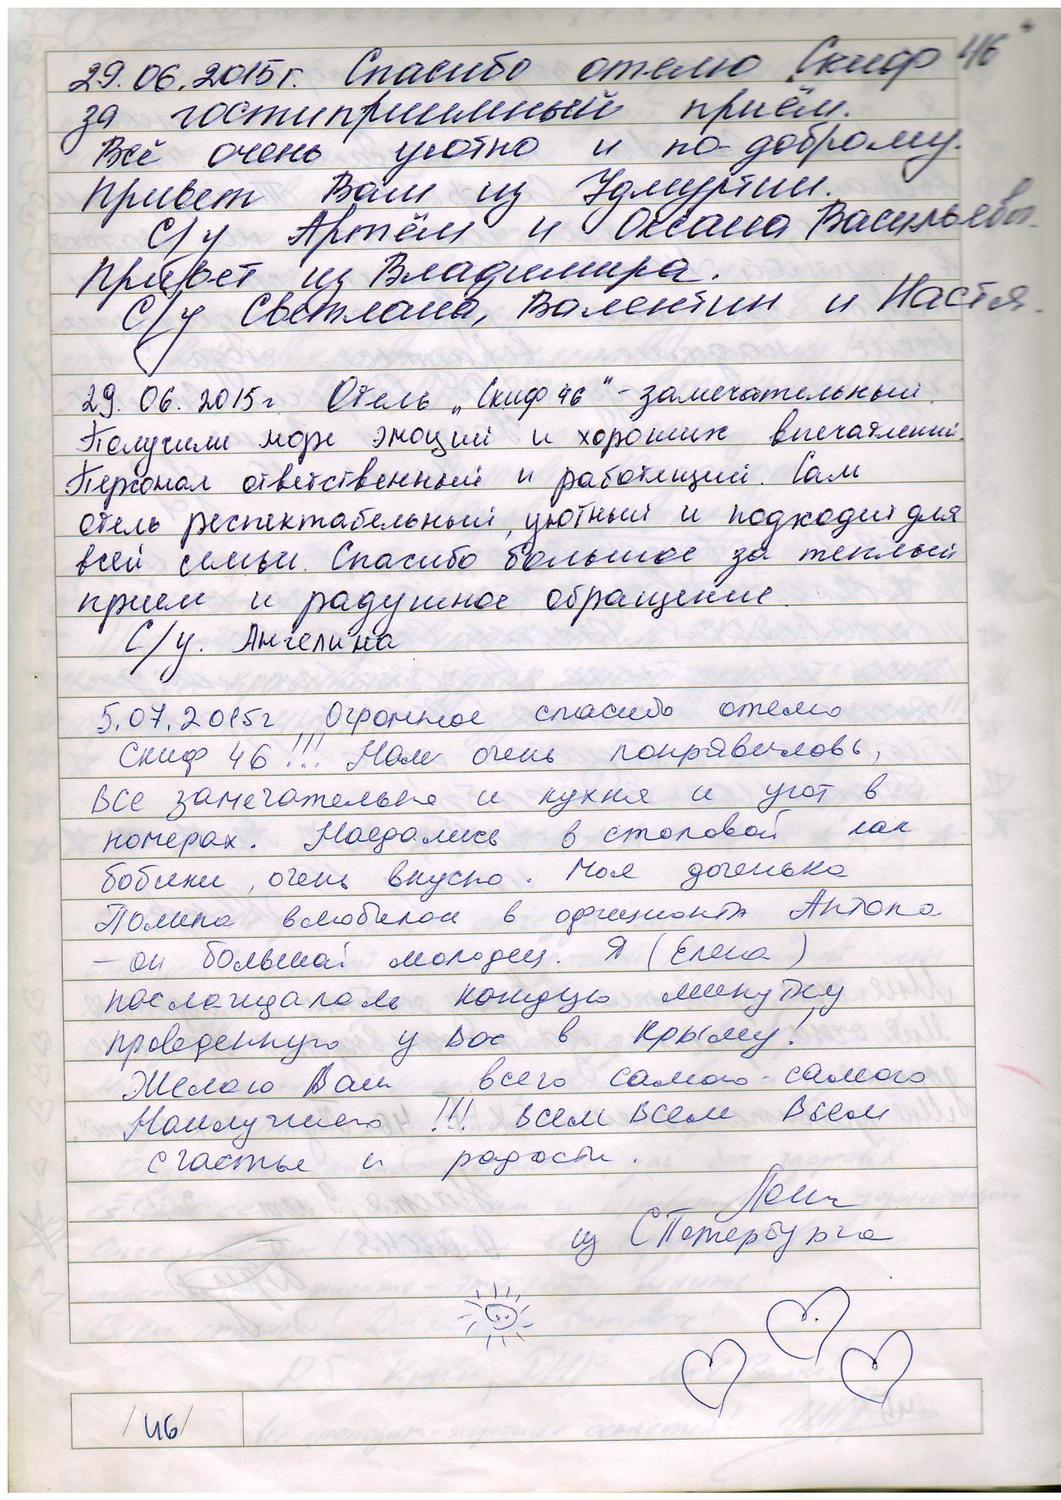 29.06.2015г. Спасибо отелю Скиф 46
за гостиприимный приём.
Всё очень уютно и по-доброму.
Привет Вам из Удмуртии.
С/у Артём и Оксана Васильевы.
Привет из Владимира.
С/у Светлана, Валентин и Настя.
29.06.2015г. Отель „Скиф 46" - замечательный.
Получили море эмоций и хороших впечатлений.
Персонал ответственный и работящий. Сам
отель респектабельный, уютный и подходит для
всей семьи. Спасибо большое за теплый
прием и радушное обращение.
С/у. Ангелина
5.07.2015г Огромное спасибо отелю
Скиф 46!!! Нам очень понравилось,
все замечательно и кухня и уют в
номерах. Наедались в столовой как
бобики, очень вкусно. Моя доченька
Полина влюбилась в официанта Антона
- он большой молодец. Я (Елена)
наслаждалась каждую минутку
проведенную у вас в Крыму!
Желаю Вам всего самого-самого
Наилучшего!!! Всем Всем Всем
счастья и радости.
из СПетербурга
/46/